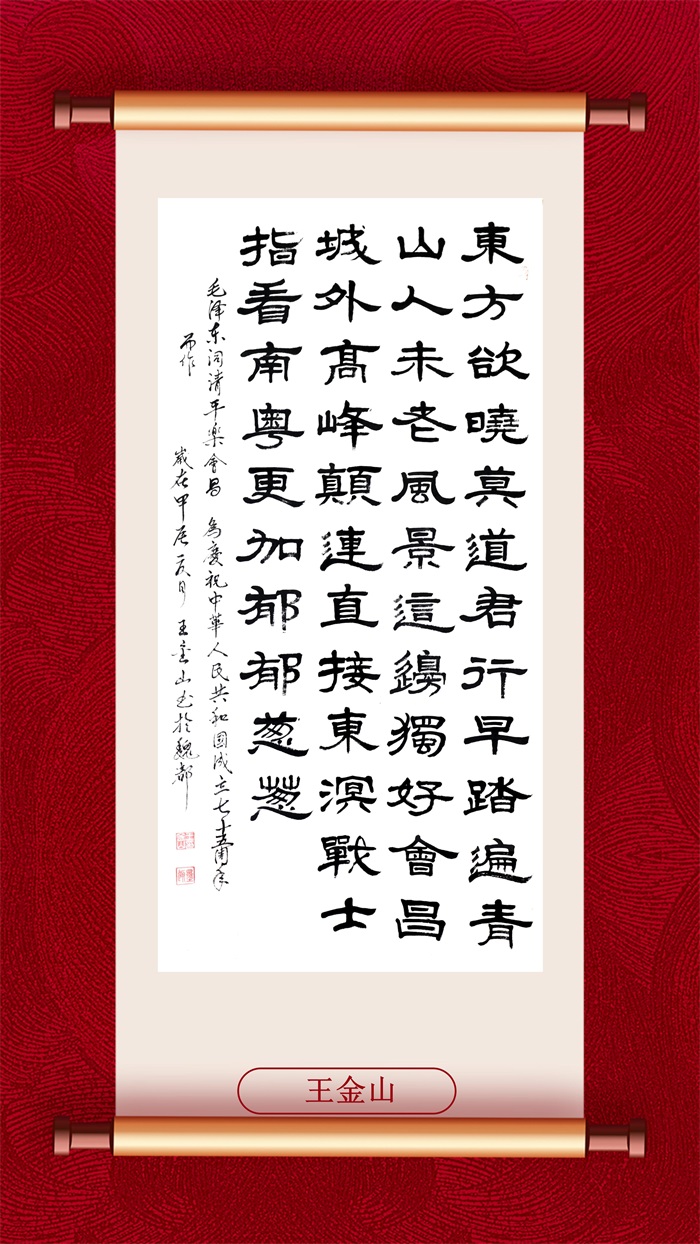 東方欲曉莫道君行早踏遍青
山人未老風景這邊獨好會昌
城外高峰顛連直接東溟戰士
指看南粵更加郁郁蔥蔥
毛泽东词清平樂會昌 為慶祝中華人民共和國成立七十五周年
而作
歲在甲辰亥月 王金山书於魏都
王金山